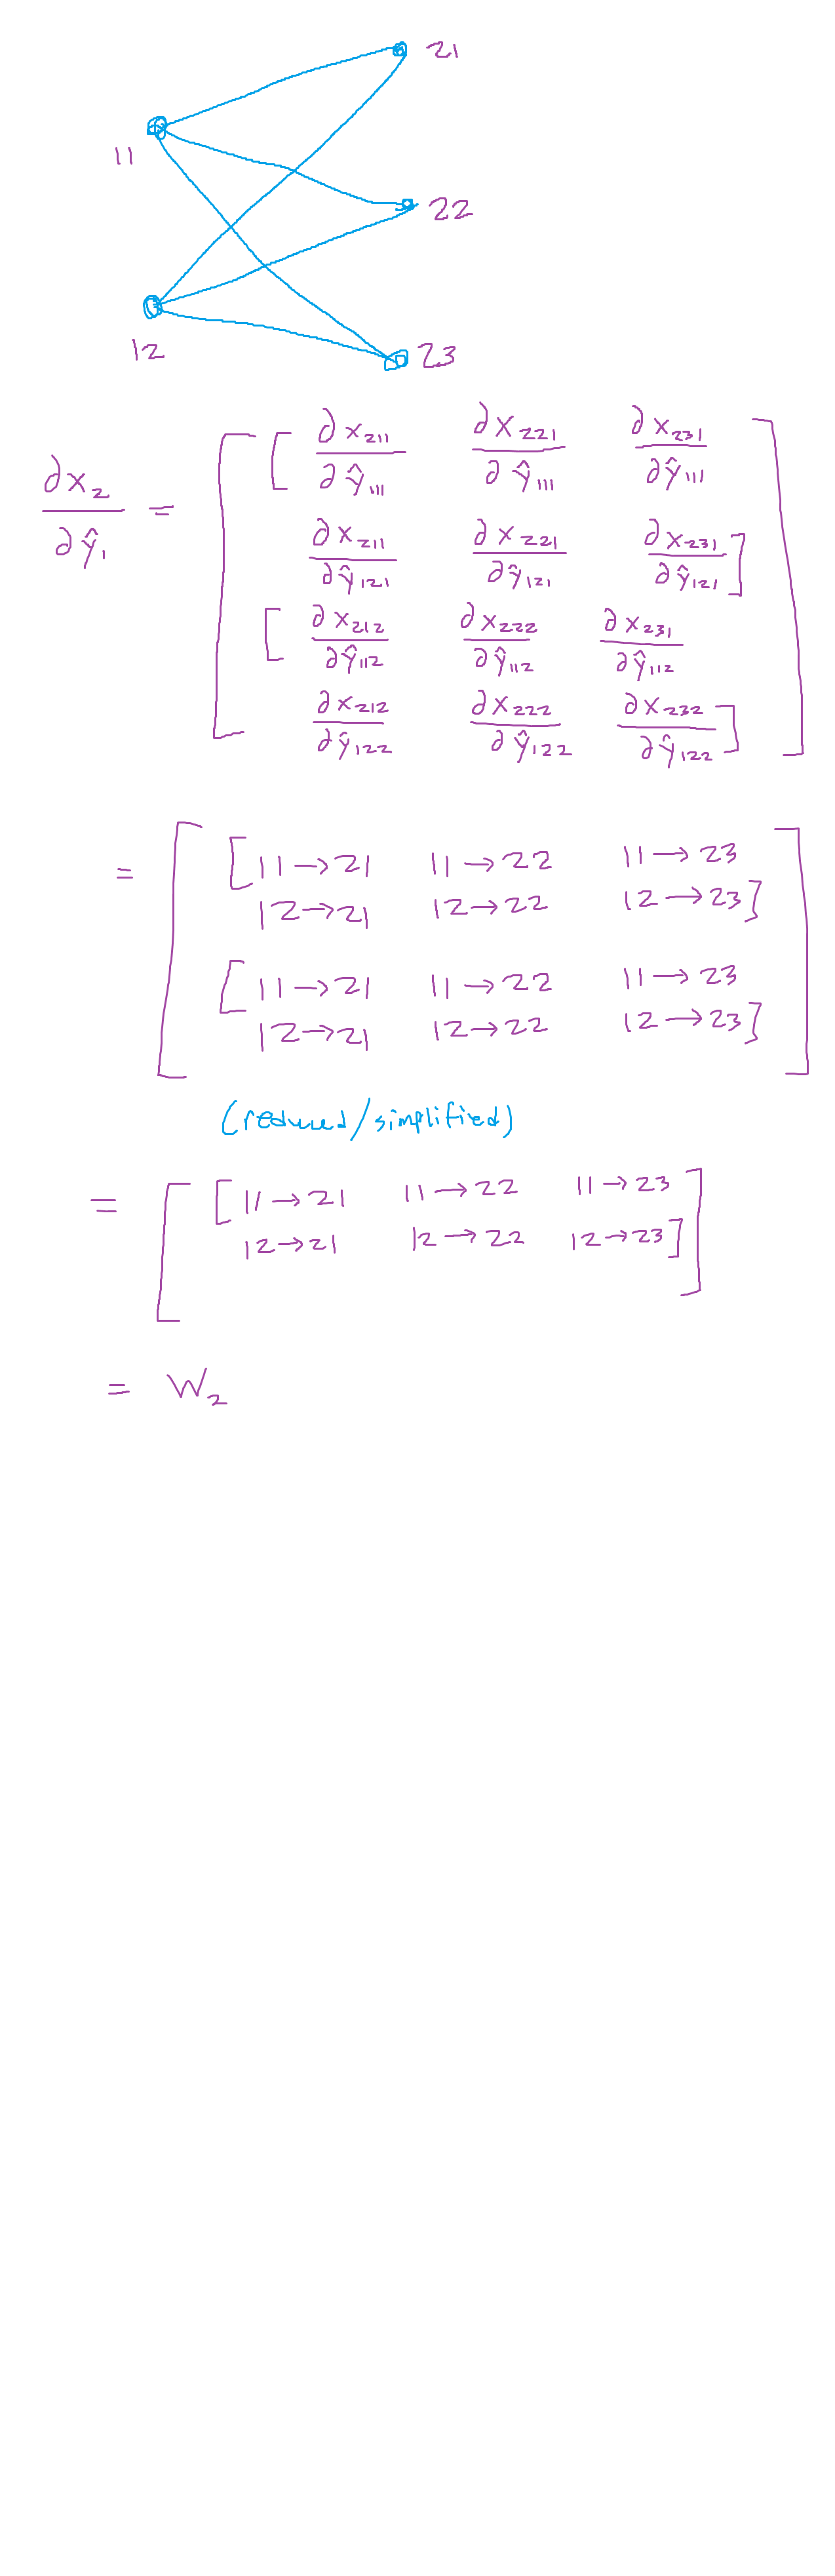 21
11
22
12
23
∂x₂/∂ŷ₁ = [ [ ∂x₂₁₁/∂ŷ₁₁₁ ∂x₂₂₁/∂ŷ₁₁₁ ∂x₂₃₁/∂ŷ₁₁₁
∂x₂₁₁/∂ŷ₁₂₁ ∂x₂₂₁/∂ŷ₁₂₁ ∂x₂₃₁/∂ŷ₁₂₁ ]
[ ∂x₂₁₂/∂ŷ₁₁₂ ∂x₂₂₂/∂ŷ₁₁₂ ∂x₂₃₁/∂ŷ₁₁₂
∂x₂₁₂/∂ŷ₁₂₂ ∂x₂₂₂/∂ŷ₁₂₂ ∂x₂₃₂/∂ŷ₁₂₂ ] ]
= [ [ 11→21 11→22 11→23
12→21 12→22 12→23 ]
[ 11→21 11→22 11→23
12→21 12→22 12→23 ] ]
(reduced/simplified)
= [ [ 11→21 11→22 11→23
12→21 12→22 12→23 ] ]
= W₂